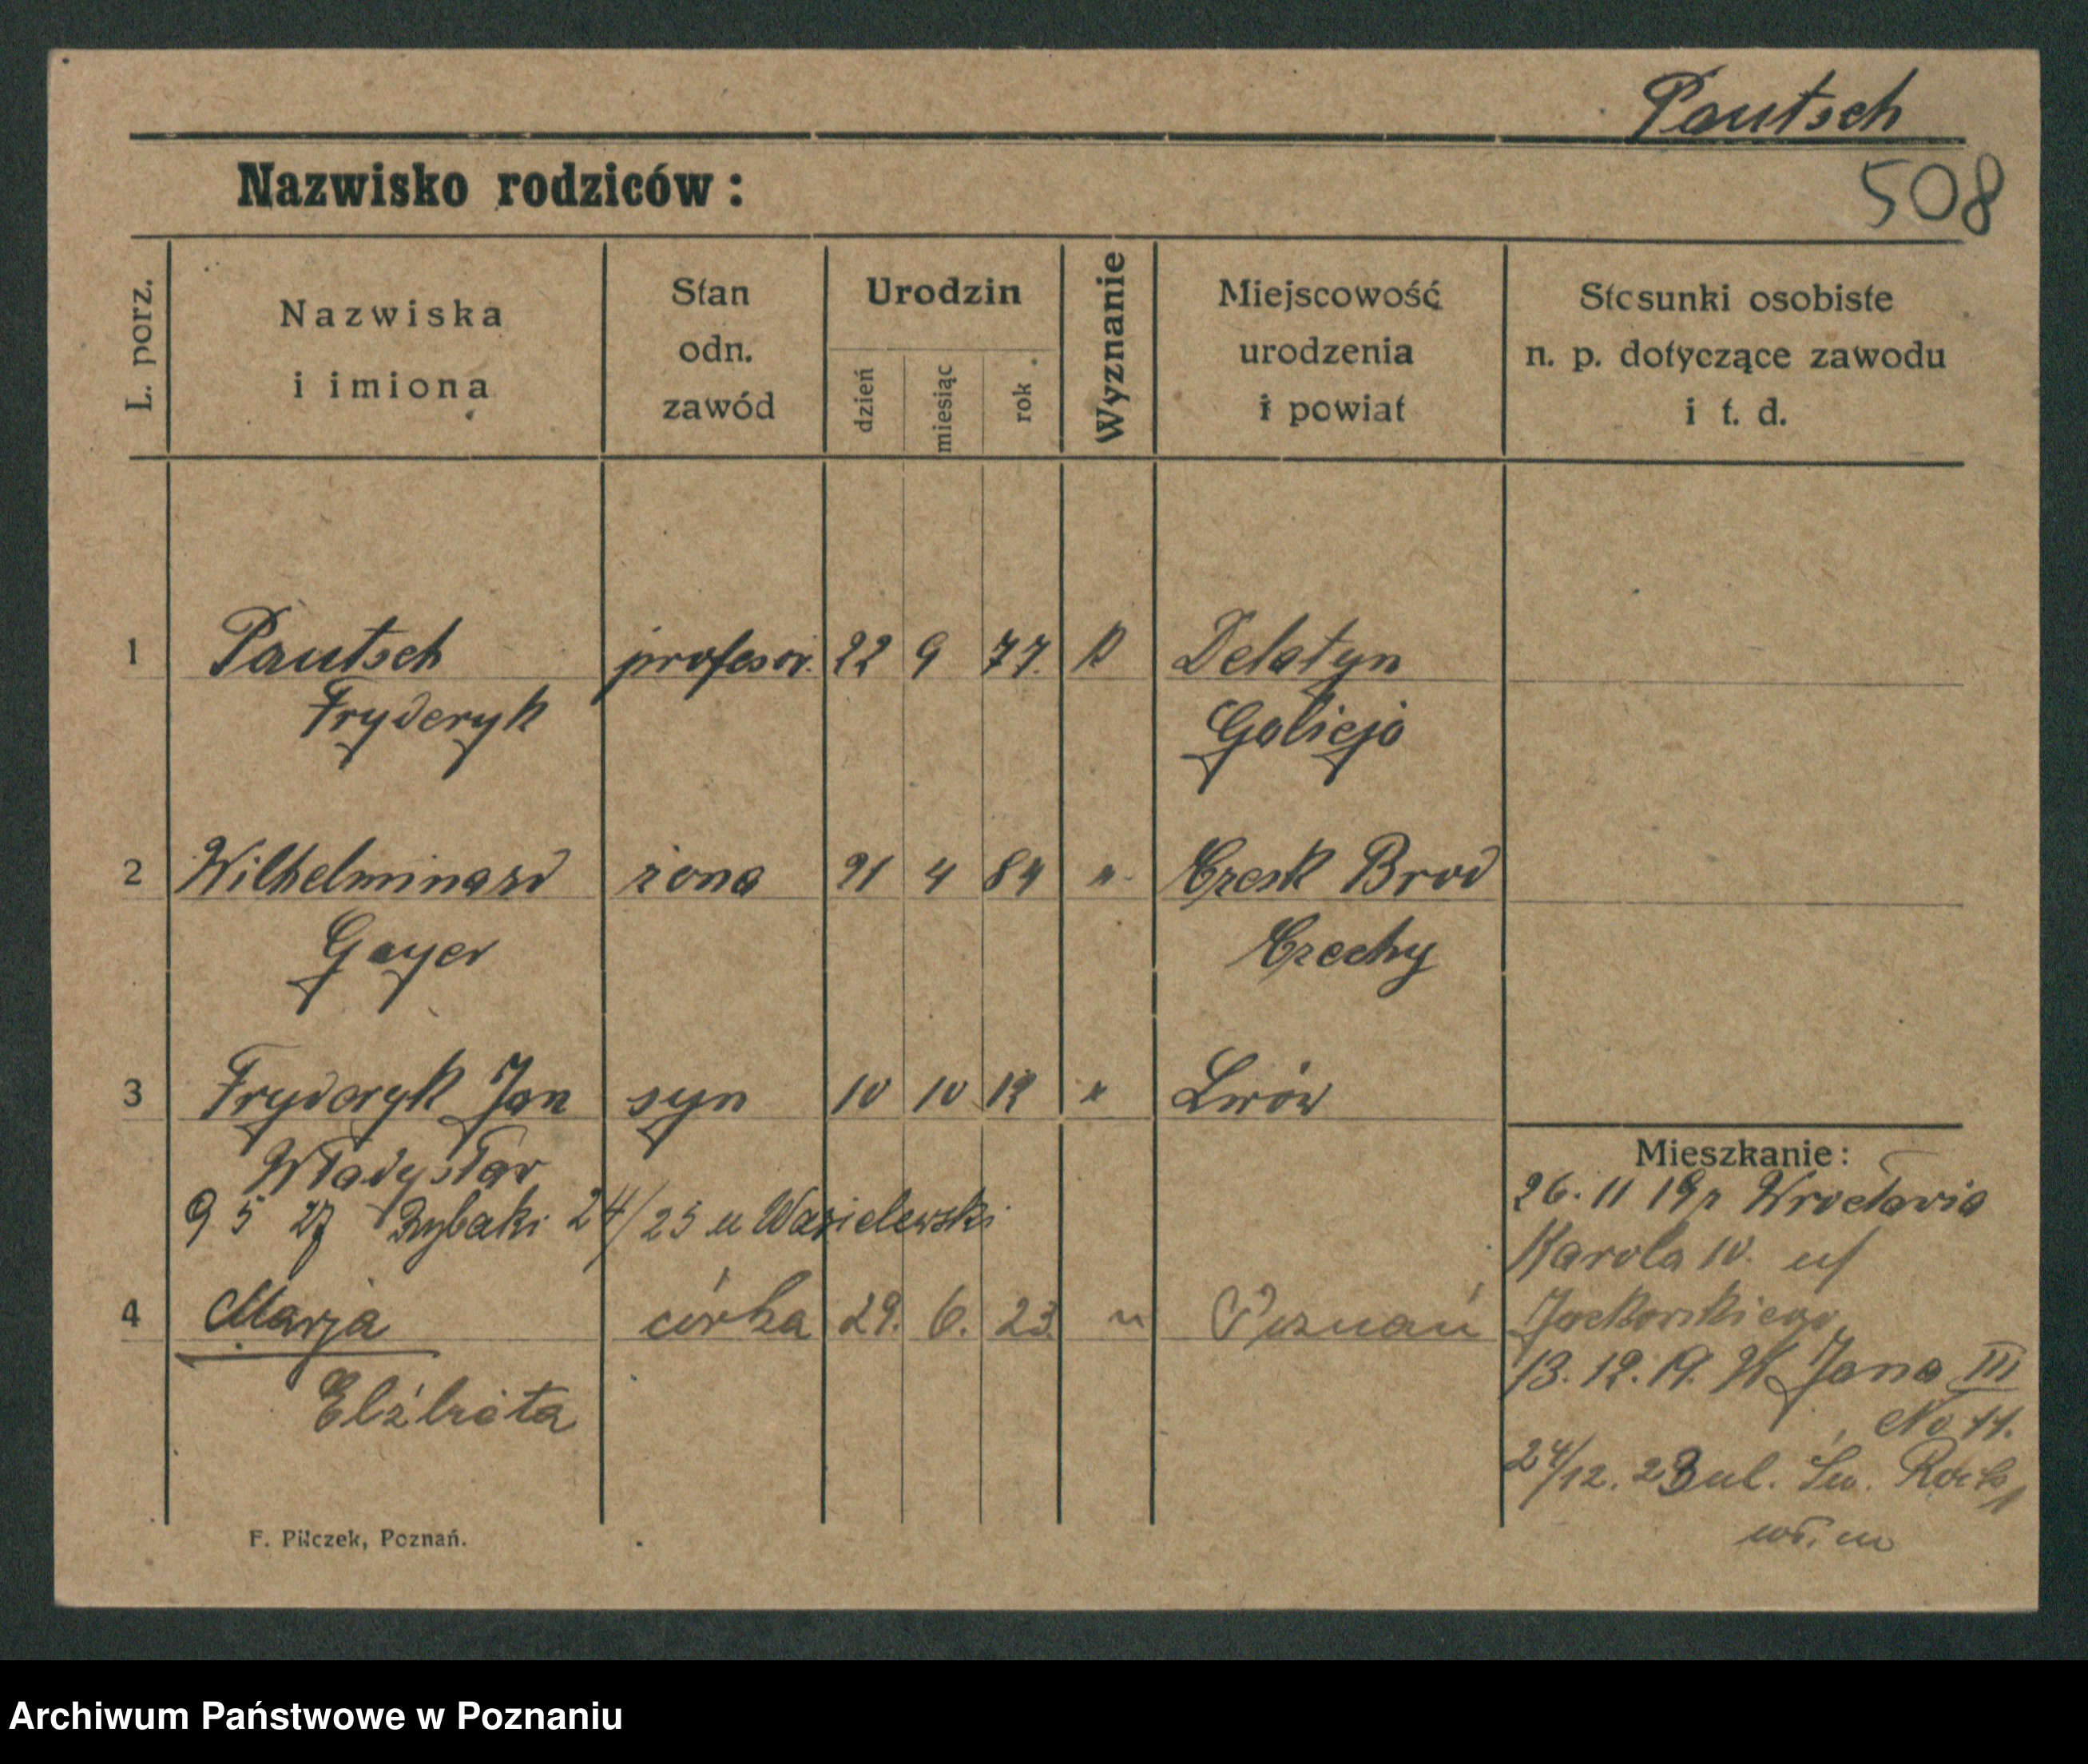 Pautsch
Nazwisko rodziców:
508
L. porz.
Nazwiska
i imiona
Stan
odn.
zawód
Urodzin
dzień
miesiąc
rok
Wyznanie
Miejscowość
urodzenia
i powiat
Stosunki osobiste
n. p. dotyczące zawodu
i t. d.
1 Pautsch profesor. 22 9 77. Delatyn
Fryderyk Galicja
2 żona 21 4 84 " Czesk Brod
Gayer Czechy
3 Fryderyk Jan syn 10 10 12 " Lwów
Władysław
9 5 27 Rybaki 24/25 u Wasielewski
4 Marja córka 29. 6. 23. " Poznań
Elżbieta
Mieszkanie:
26. 11 19 z Wrocławia
Karola 10. u/
13. 12. 19. W. Jana III
No 11.
24/12. 23 ul. Św.
F. Pilczek, Poznań.
Archiwum Państwowe w Poznaniu